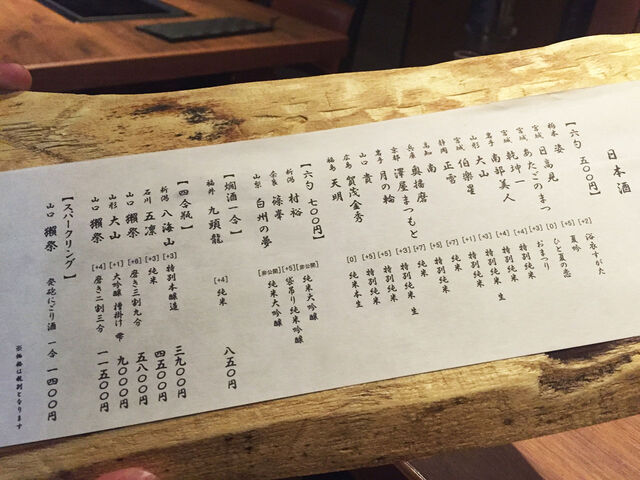 日本酒
【六勺 五〇〇円】
栃木 姿 [+2] 浴衣すがた
宮城 日高見 [+5] 夏吟
宮城 あたごのまつ [+3] ひと夏の恋
宮城 乾坤一 [+3] おまつり
岩手 南部美人 [+4] 特別純米
山形 大山 [+4] 特別純米 生
宮城 伯楽星 [+1] 特別純米
静岡 正雪 [+7] 純米
高知 南 [+7] 特別純米
兵庫 奥播磨 [+3] 純米 生
京都 澤屋まつもと
岩手 月の輪 [+5] 特別純米
山口 貴 [+5] 特別純米
広島 賀茂金秀
福島 天明 [0] 純米本生
【六勺 七〇〇円】
新潟 村祐 [非公開] 純米大吟醸
奈良 篠峯 [+5] 袋吊り純米吟醸
山梨 白州の夢 [非公開] 純米大吟醸
【燗酒一合】
福井 九頭龍 [+4] 純米 八五〇円
【四合瓶】
新潟 八海山 [+3] 特別本醸造 三九〇〇円
石川 五凛 [+3] 純米 四五〇〇円
山口 獺祭 [+6] 磨き三割九分 五八〇〇円
山形 大山 [+1] 大吟醸 槽掛け 雫 九〇〇〇円
山口 獺祭 [+4] 磨き二割三分 一一五〇〇円
【スパークリング】
山口 獺祭 発泡にごり酒 一合 一四〇〇円
※価格は税別となります